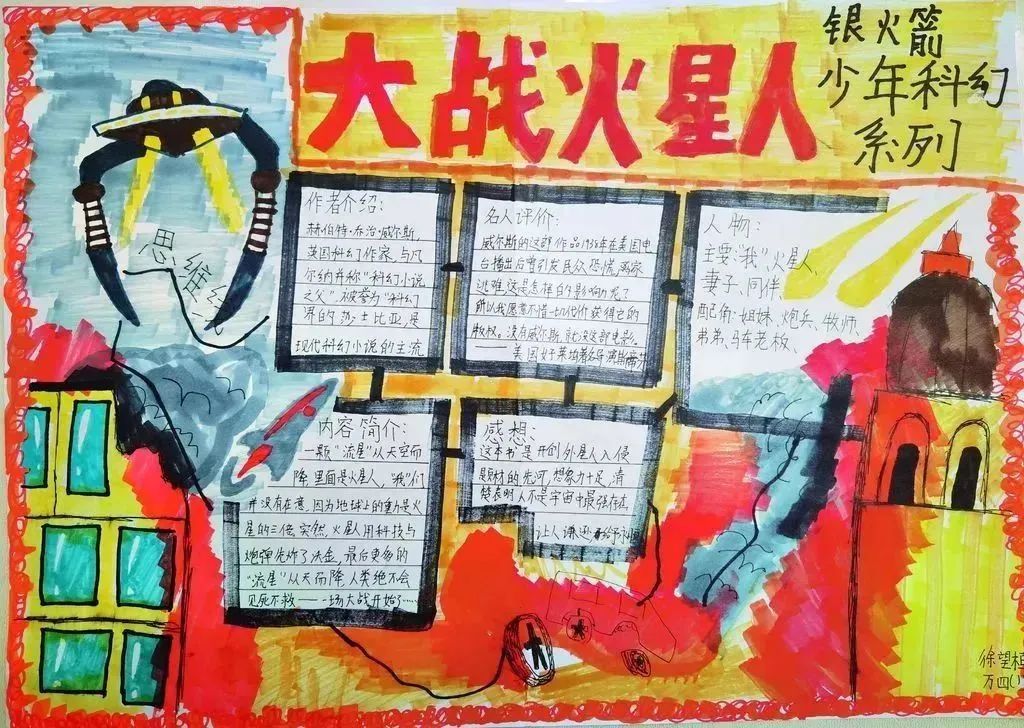 大战火星人
银火箭
少年科幻
系列
思维
作者介绍：
赫伯特·乔治·威尔斯，
英国科幻作家，与凡
尔纳并称"科幻小说
之父"被誉为"科幻
界的莎士比亚，是
现代科幻小说的主流
名人评价：
威尔斯的这部作品1938年在美国电
台播出后曾引发民众恐慌，离家
逃难，这是怎样的影响力呢？
所以我愿意不惜一切代价获得它的
版权。没有威尔斯，就没这部电影。
——美国好莱坞著名导演斯
人物：
主要："我"、火星人、
妻子、同伴、
配角：姐妹、炮兵、牧师、
弟弟、马车老板、
内容简介：
一颗"流星"从天空而
降，里面是火星人，"我"们
并没有在意，因为地球上的重力是火
星的三倍，突然，火星人用科技与
炮弹先炸了沃金，最后更多的
"流星"从天而降，人类绝不会
见死不救——一场大战开始了……
感想：
这本书是开创外星人入侵
题材的先河，想象力十足，清
楚表明人不是宇宙中最强存在，
让人谦逊
徐望
万四(1)